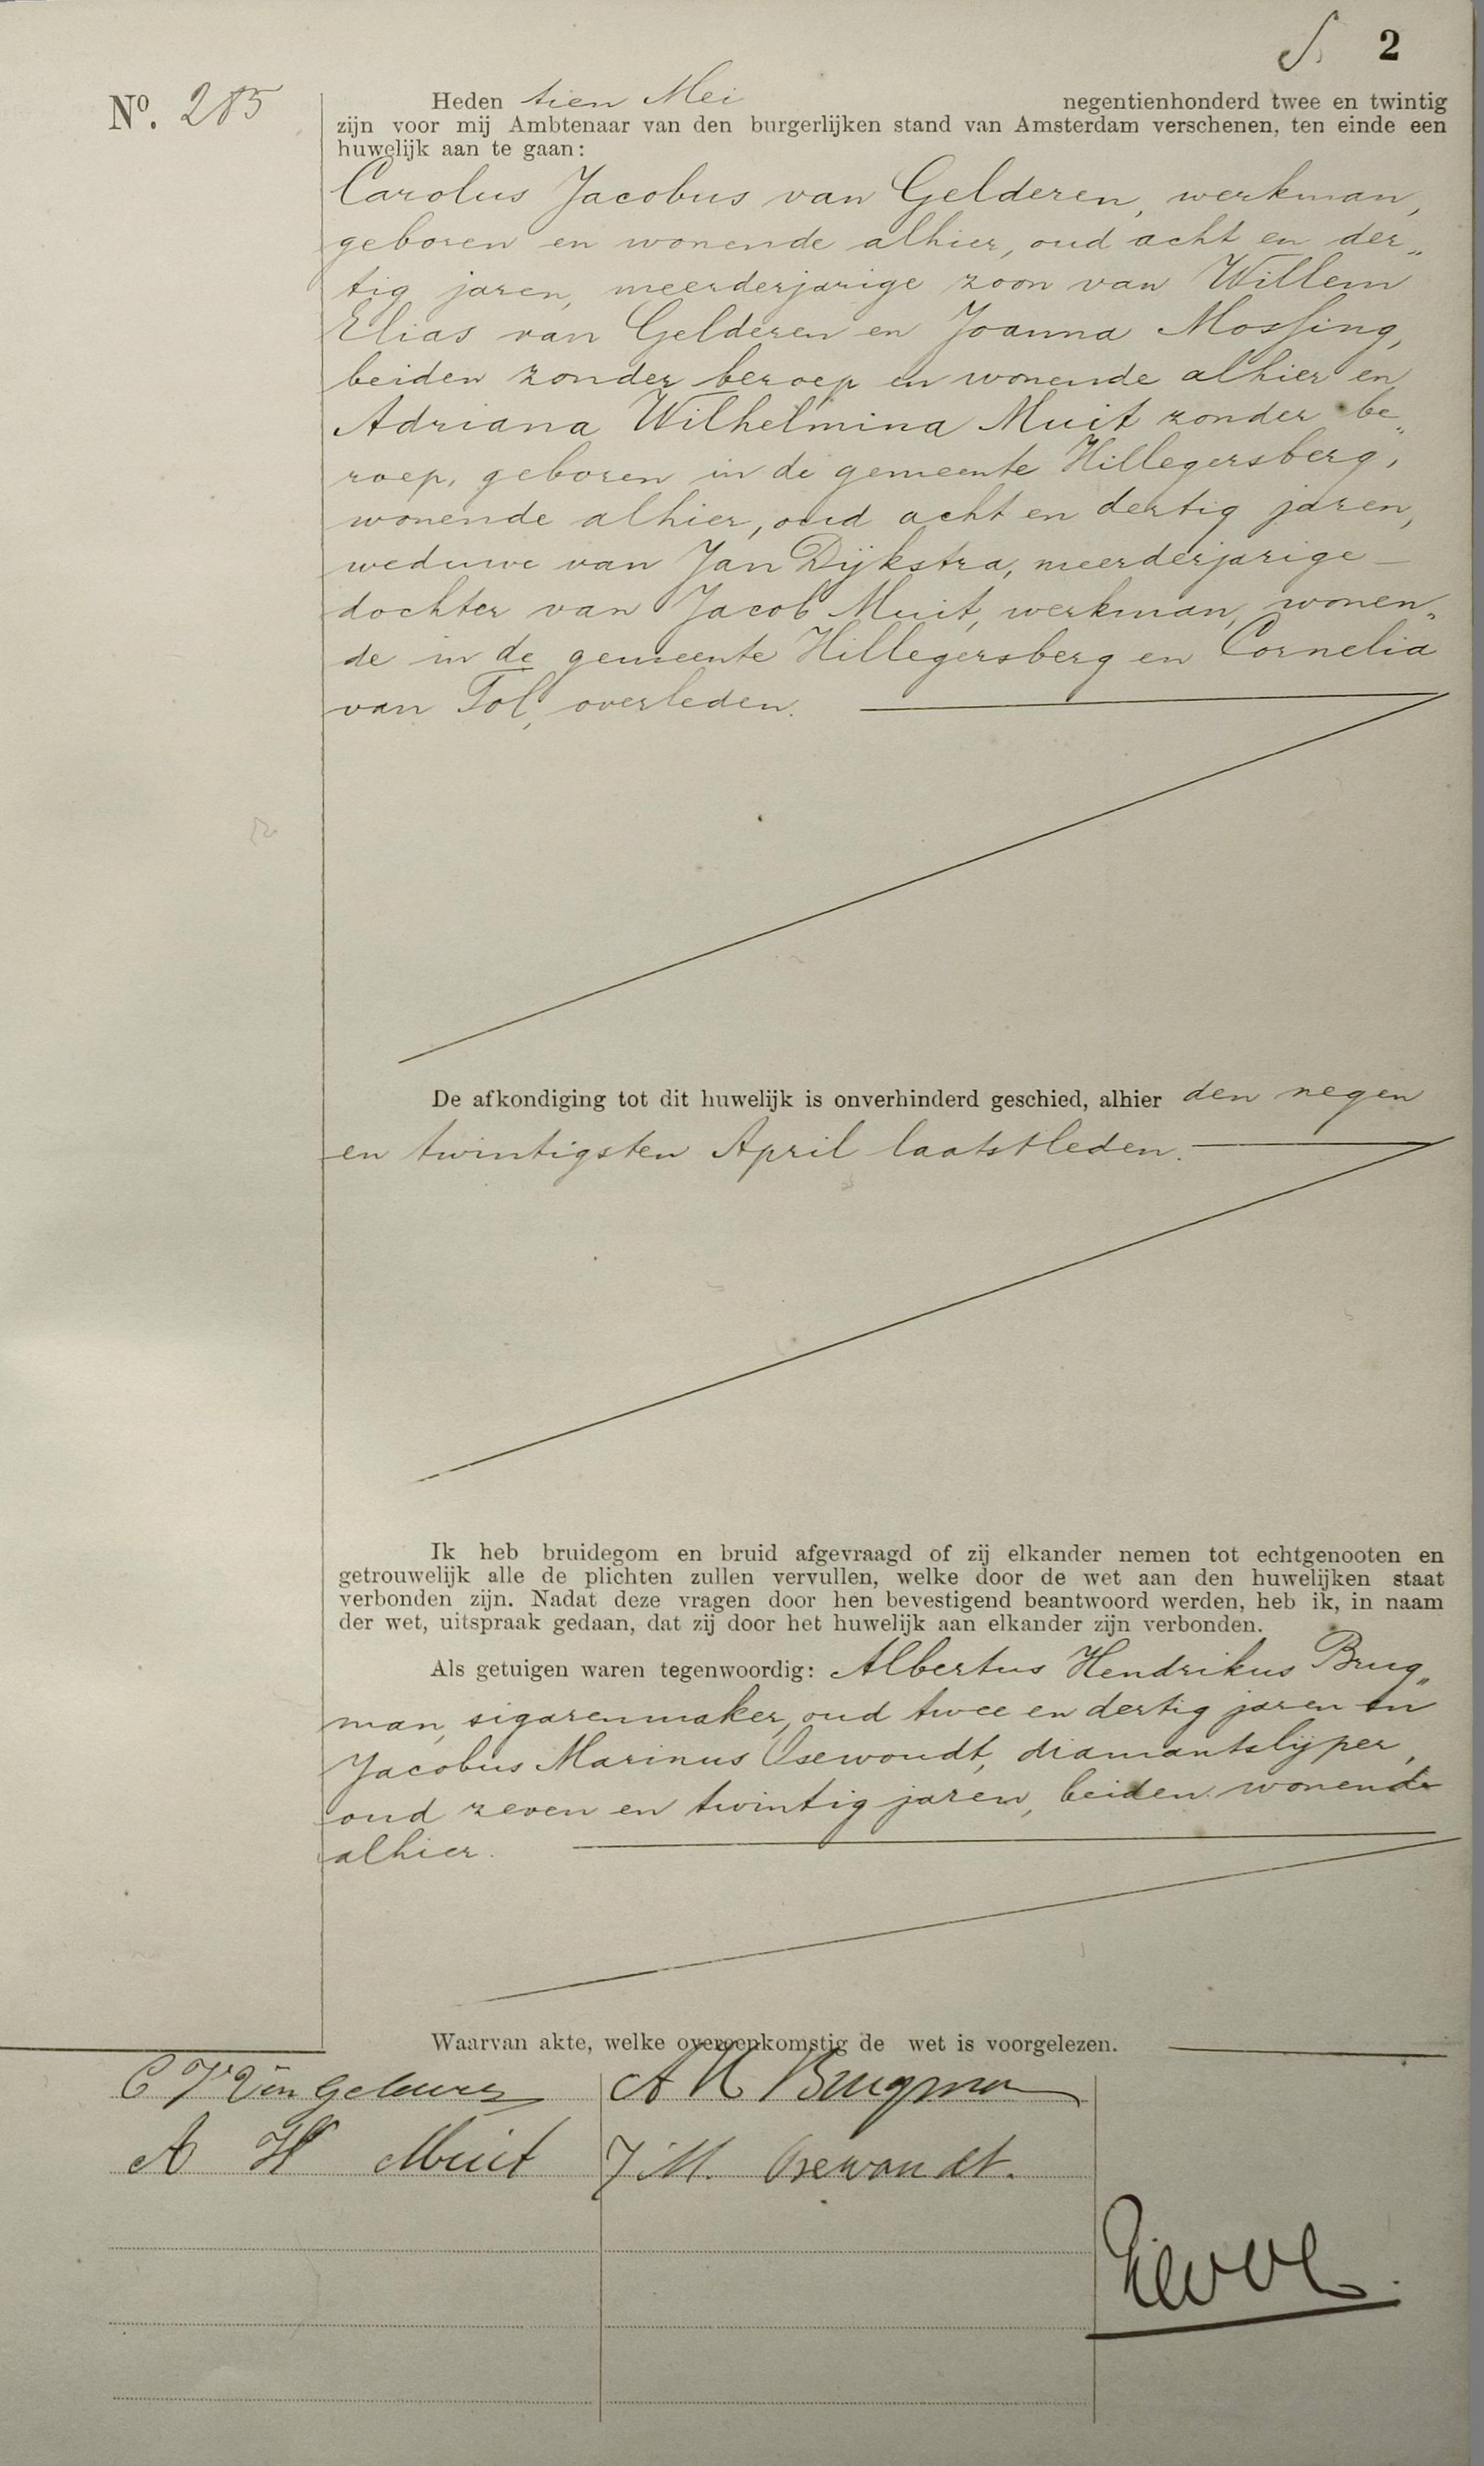 S. 2
No. 285
Heden tien Mei negentienhonderd twee en twintig
zijn voor mij Ambtenaar van den burgerlijken stand van Amsterdam verschenen, ten einde een
huwelijk aan te gaan:
Carolus Jacobus van Gelderen, werkman,
geboren en wonende alhier, oud acht en der„
tig jaren, meerderjarige zoon van Willem
Elias van Gelderen en Joanna Mossing,
beiden zonder beroep en wonende alhier en
Adriana Wilhelmina Muit zonder be„
roep, geboren in de gemeente Hillegersberg,
wonende alhier, oud acht en dertig jaren,
weduwe van Jan Dijkstra, meerderjarige
dochter van Jacob Muit, werkman, wonen„
de in de gemeente Hillegersberg en Cornelia
van Tol, overleden.
De afkondiging tot dit huwelijk is onverhinderd geschied, alhier den negen
en twintigsten April laatstleden.
Ik heb bruidegom en bruid afgevraagd of zij elkander nemen tot echtgenooten en
getrouwelijk alle de plichten zullen vervullen, welke door de wet aan den huwelijken staat
verbonden zijn. Nadat deze vragen door hen bevestigend beantwoord werden, heb ik, in naam
der wet, uitspraak gedaan, dat zij door het huwelijk aan elkander zijn verbonden.
Als getuigen waren tegenwoordig: Albertus Hendrikus Brug„
man, sigarenmaker, oud twee en dertig jaren en
Jacobus Marinus Osewoudt, diamantslijper,
oud zeven en twintig jaren, beiden wonende
alhier.
Waarvan akte, welke overeenkomstig de wet is voorgelezen.
C J Van Gelderen A H Brugman
A W Muit J M. Osewoudt.